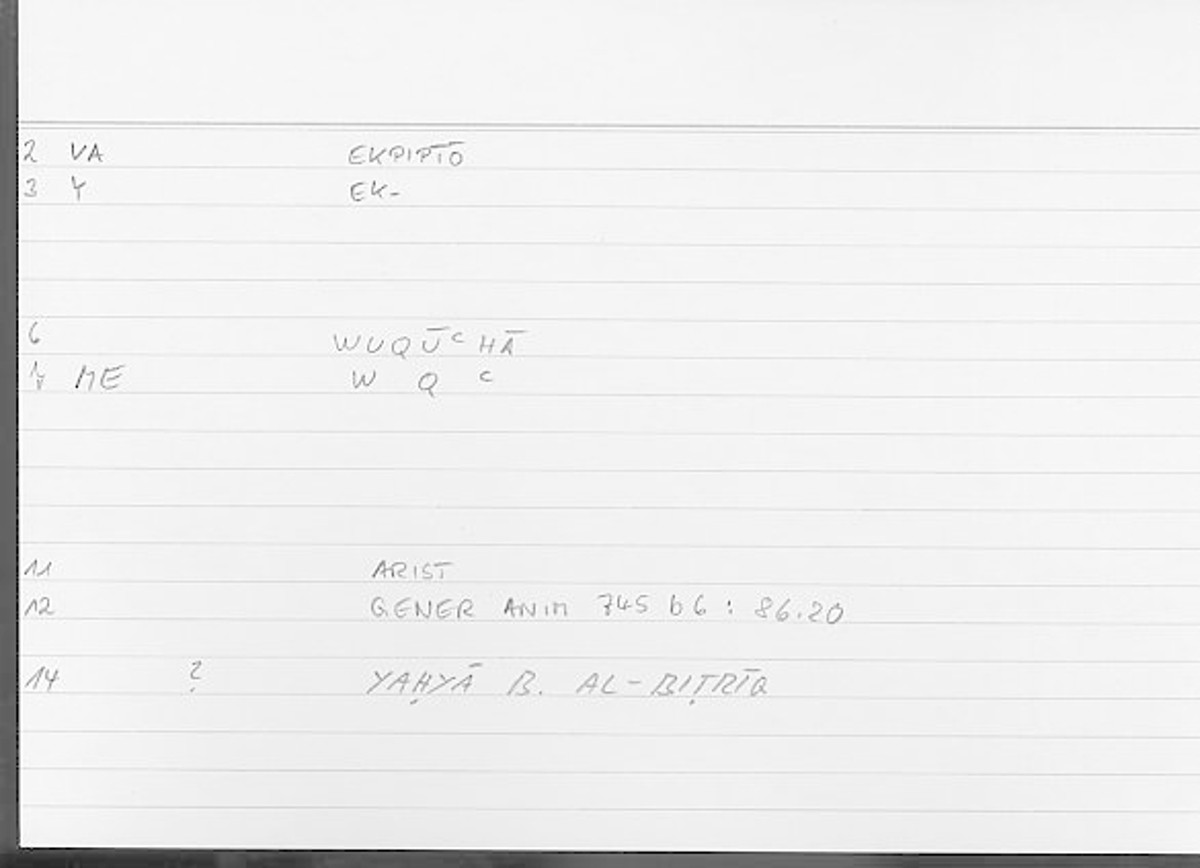 2 VA EKPIPTŌ
3 Y EK-
6 WUQŪʿHĀ
7 ME W Q ʿ
11 ARIST
12 GENER ANIM 745 b 6 : 86.20
14 ? YAḤYĀ B. AL-BIṬRĪQ